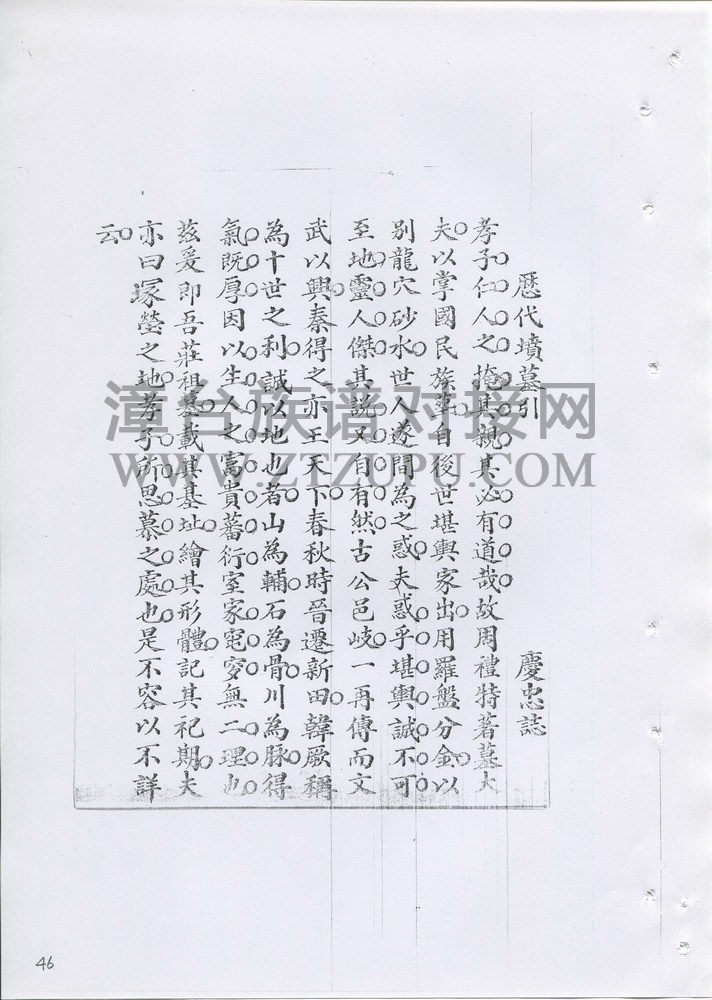 歷代墳墓引 慶忠誌
孝子仁人之掩其親其必有道哉故周禮特著墓大
夫以掌國民族葬自後世堪輿家出用羅盤分金以
別龍穴砂水世人遂間為之惑夫惑乎堪輿誠不可
至地靈人傑其說又自有然古公邑岐一再傳而文
武以興秦得之亦王天下春秋時晉遷新田韓厥稱
為十世之利誠以地也者山為輔石為骨川為脉得
氣既厚因以生人之富貴蕃衍室家窀穸無二理也
茲爰即吾莊祖墓載其基址繪其形體記其祀期夫
亦曰塚塋之地孝子所思慕之處也是不容以不詳
云
漳台族谱对接网
WWW.ZTZUPU.COM
46